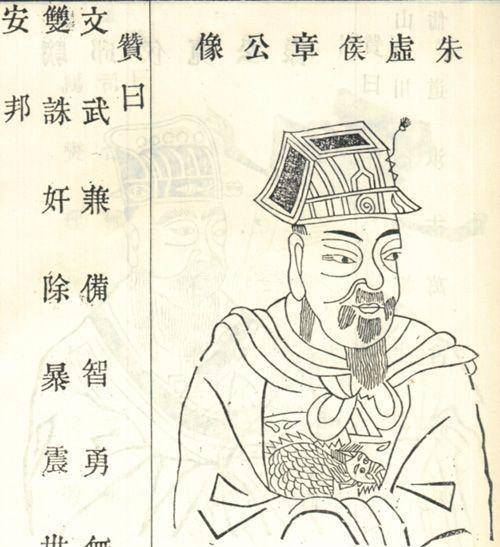 朱虛侯章公像
贊曰
文武兼備智勇無
雙誅奸除暴震世
安邦